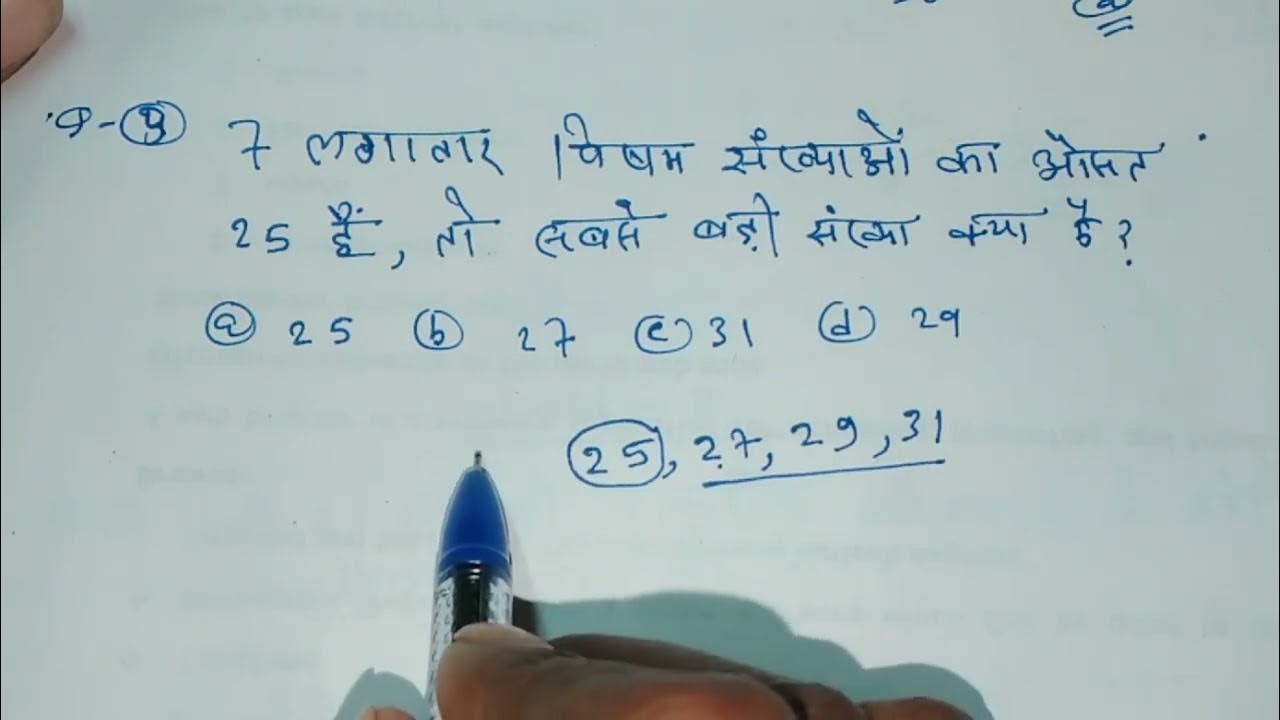 7 लगातार विषम संख्याओं का औसत
25 हैं, तो सबसे बड़ी संख्या क्या है?
(a) 25 (b) 27 (c) 31 (d) 29
25, 27, 29, 31